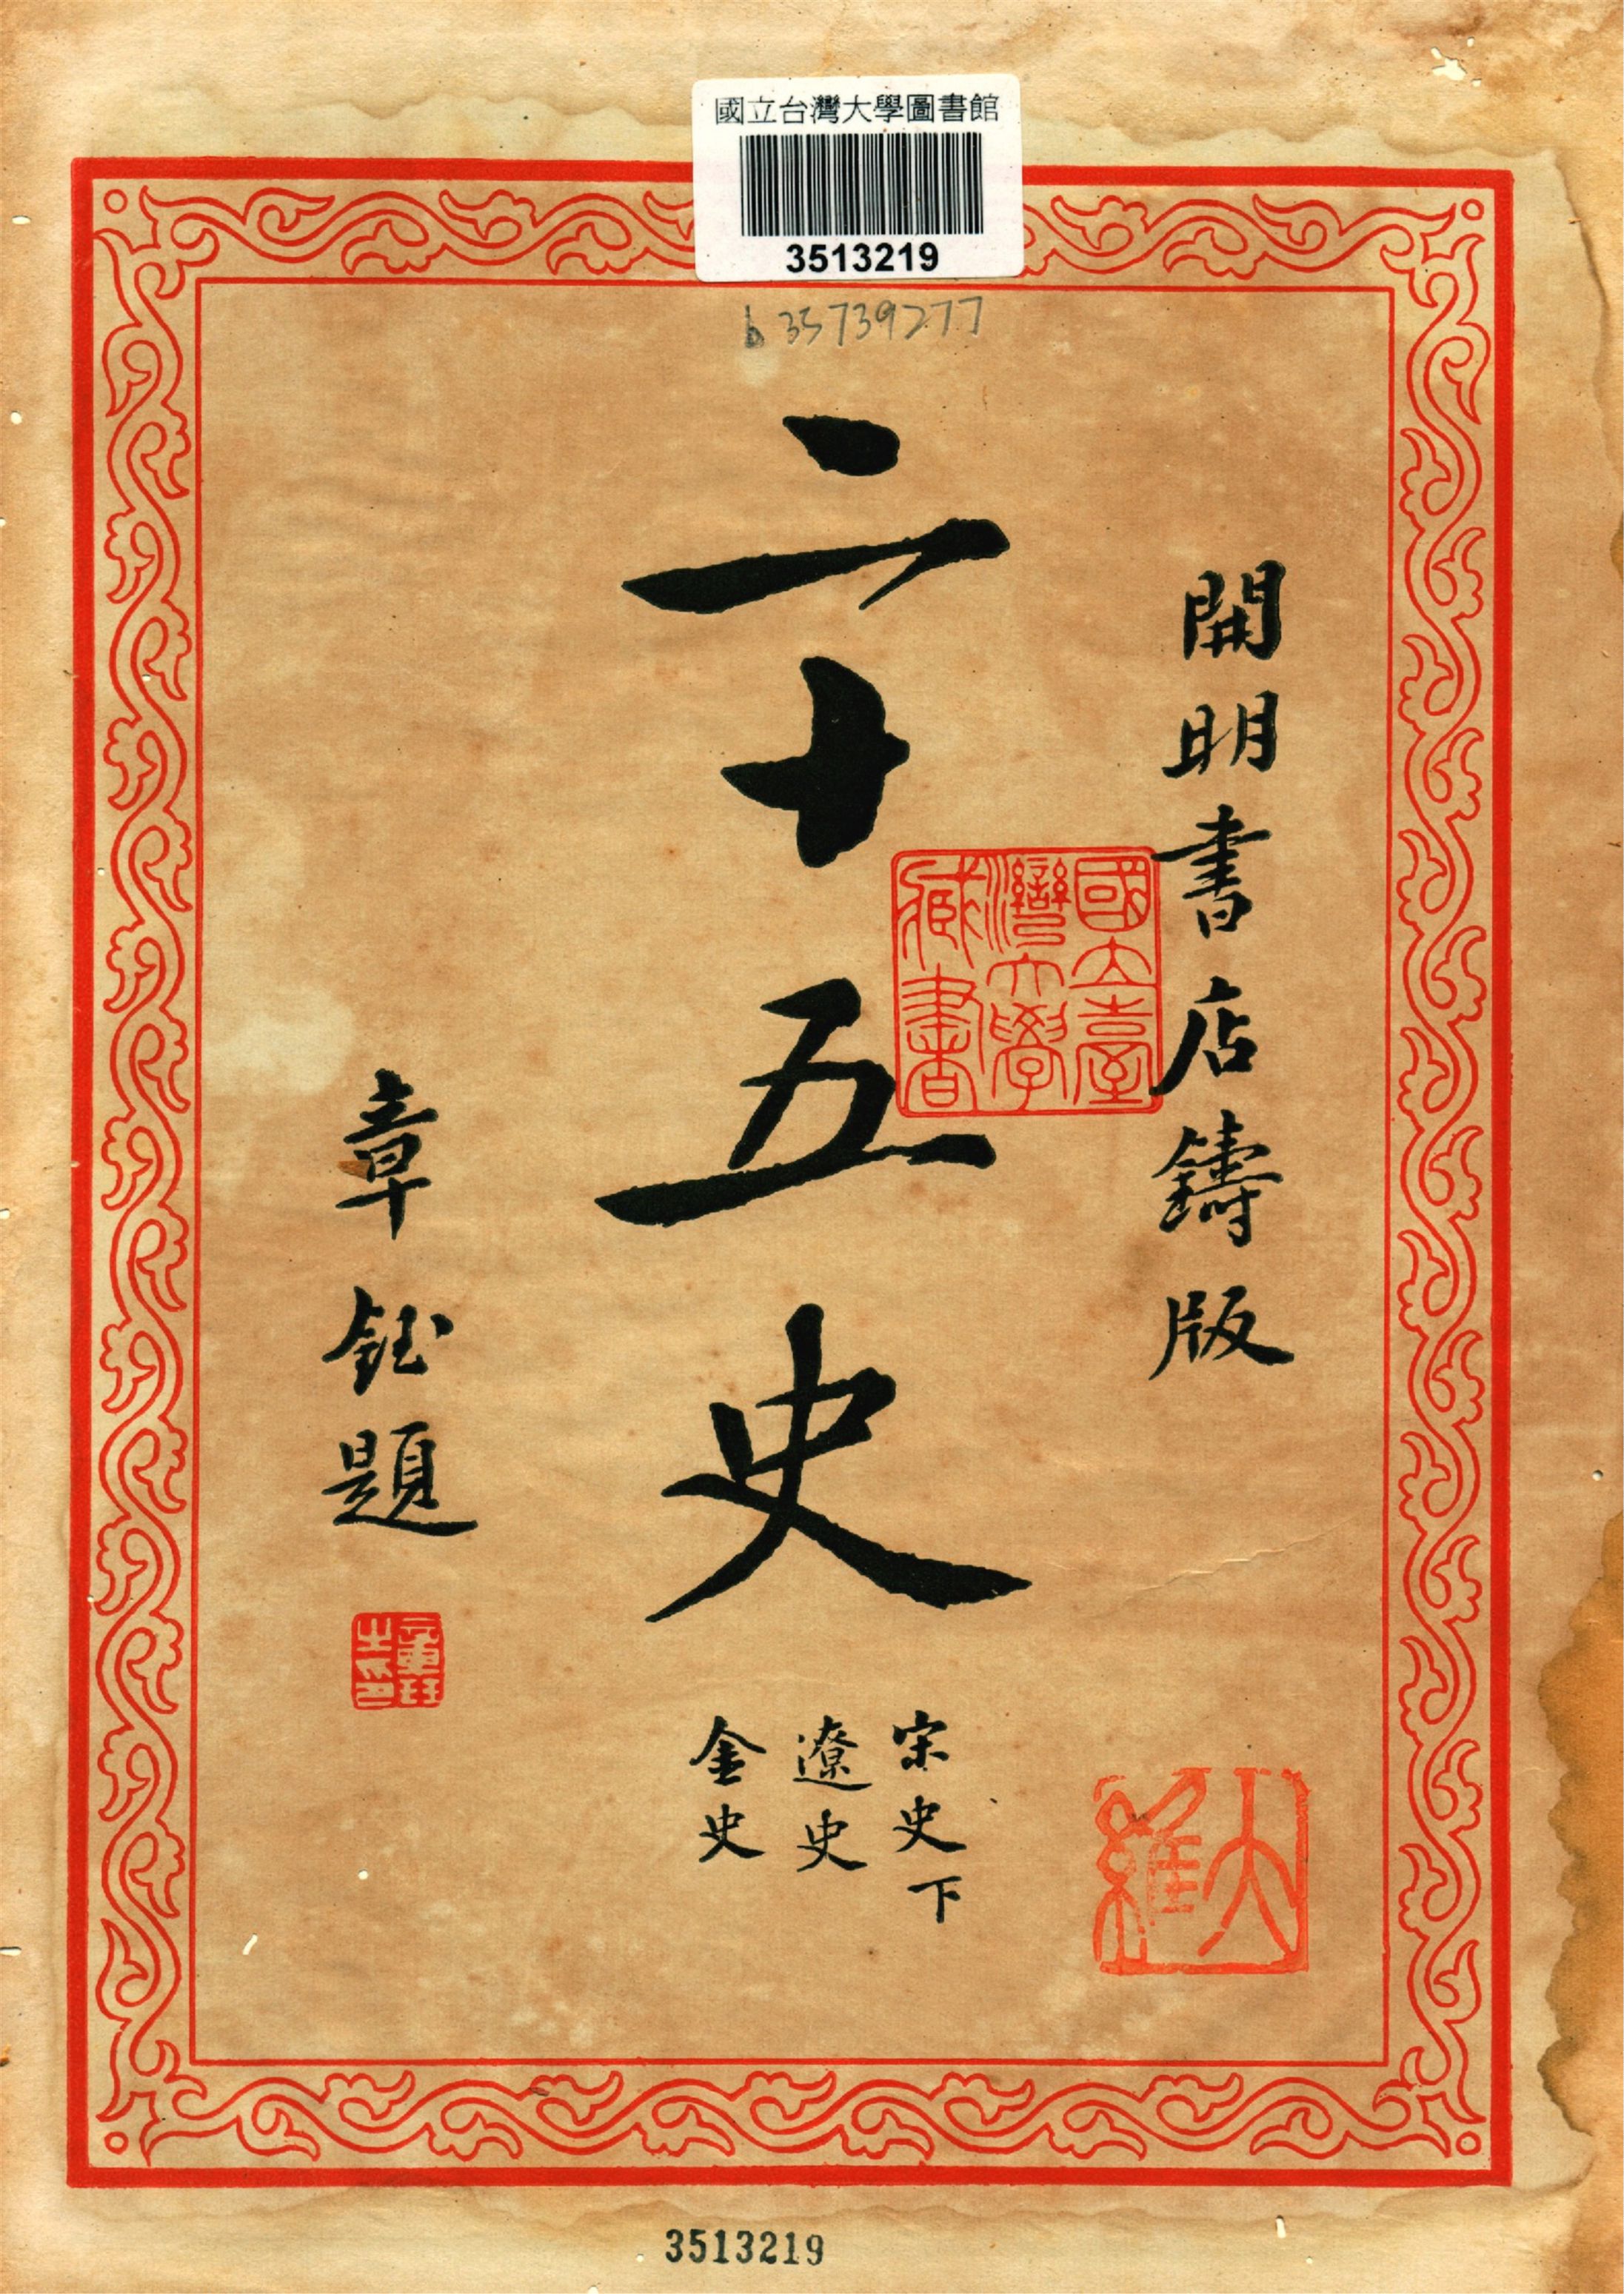 國立台灣大學圖書館
3513219
b35739277
開明書店鑄版
二十五史
國立臺
灣大學
藏書
宋史下
遼史
金史
章鈺題
章鈺
之印
大
維
3513219